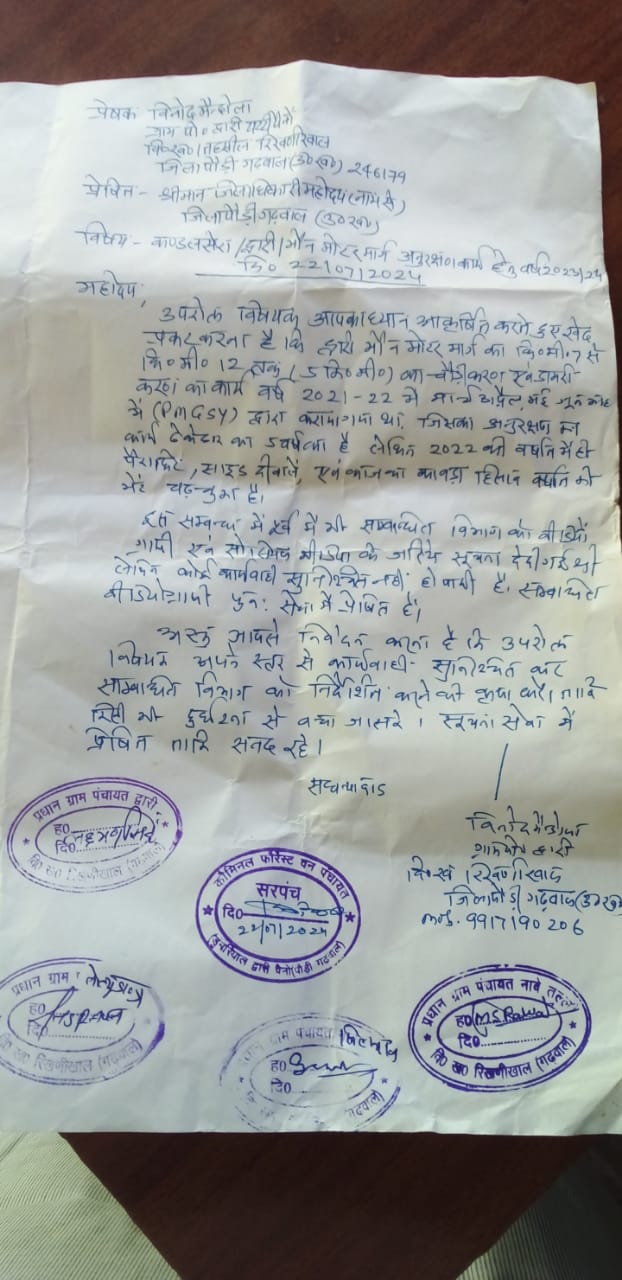 प्रेषक विनोद मैन्दोला
ग्राम पो० द्वारी
वि०ख०/तहसील रिखणीखाल
जिला पौड़ी गढ़वाल (उ०ख०) 246179
प्रेषित - श्रीमान जिलाधिकारी महोदय (नाम से)
जिला पौड़ी गढ़वाल (उ०ख०)
विषय - काण्डलसेरा/द्वारी/भौन मोटर मार्ग अनुरक्षण कार्य हेतु वर्ष 2023/24
दि० 22/07/2024
महोदय,
उपरोक्त विषयक आपका ध्यान आकर्षित करते हुए खेद
प्रकट करना है। कि द्वारी भौन मोटर मार्ग का कि०मी०7 से
कि०मी० 12 तक (5 कि०मी०) का चौड़ीकरण एवं डामरी
करण का कार्य वर्ष 2021-22 में मार्च अप्रैल, मई जून माह
में (PMGSY) द्वारा कराया गया था, जिसका अनुरक्षण
कार्य ठेकेदार का 5 वर्ष का है लेकिन 2022 की बर्षात में ही
पैराफिट, साइड दीवालें, एवं हिलान बर्षात की
भेंट चढ़ चुका है।
इस सम्बन्ध में पूर्व में भी सम्बन्धित विभाग को वीडियो
ग्राफी एवं सोशियल मीडिया के जरिये सूचना दे दी गई थी
लेकिन कोई कार्यवाही सुनिश्चित नहीं हो पायी है। सम्बन्धित
वीडियोग्राफी पुनः सेवा में प्रेषित है।
अस्तु आपसे निवेदन करना है कि उपरोक्त
विषयक अपने स्तर से कार्यवाही सुनिश्चित कर
सम्बन्धित विभाग को निर्देशित करने की कृपा करें। ताकि
किसी भी दुर्घटना से बचा जा सके। सूचना सेवा में
प्रेषित ताकि सनद रहे।
सधन्यवाद
विनोद मैन्दोला
ग्राम पो० द्वारी
वि०ख० रिखणीखाल
जिला पौड़ी गढ़वाल (उ०ख०)
मो०. 9917190206
प्रधान ग्राम पंचायत द्वारी
ह०
दि०
वि० ख० रिखणीखाल (गढ़वाल)
कौमिनल फॉरेस्ट वन पंचायत
सरपंच
दि०
22/07/2024
(डबरियाल द्वारी पैनो (पौड़ी गढ़वाल)
प्रधान ग्राम
ह०
दि०
वि० ख० रिखणीखाल (गढ़वाल)
ग्राम पंचायत
ह०
दि०
गढ़वाल)
प्रधान ग्राम पंचायत नावे तल्ली
ह० M S Rawat
दि०
वि० ख० रिखणीखाल (गढ़वाल)